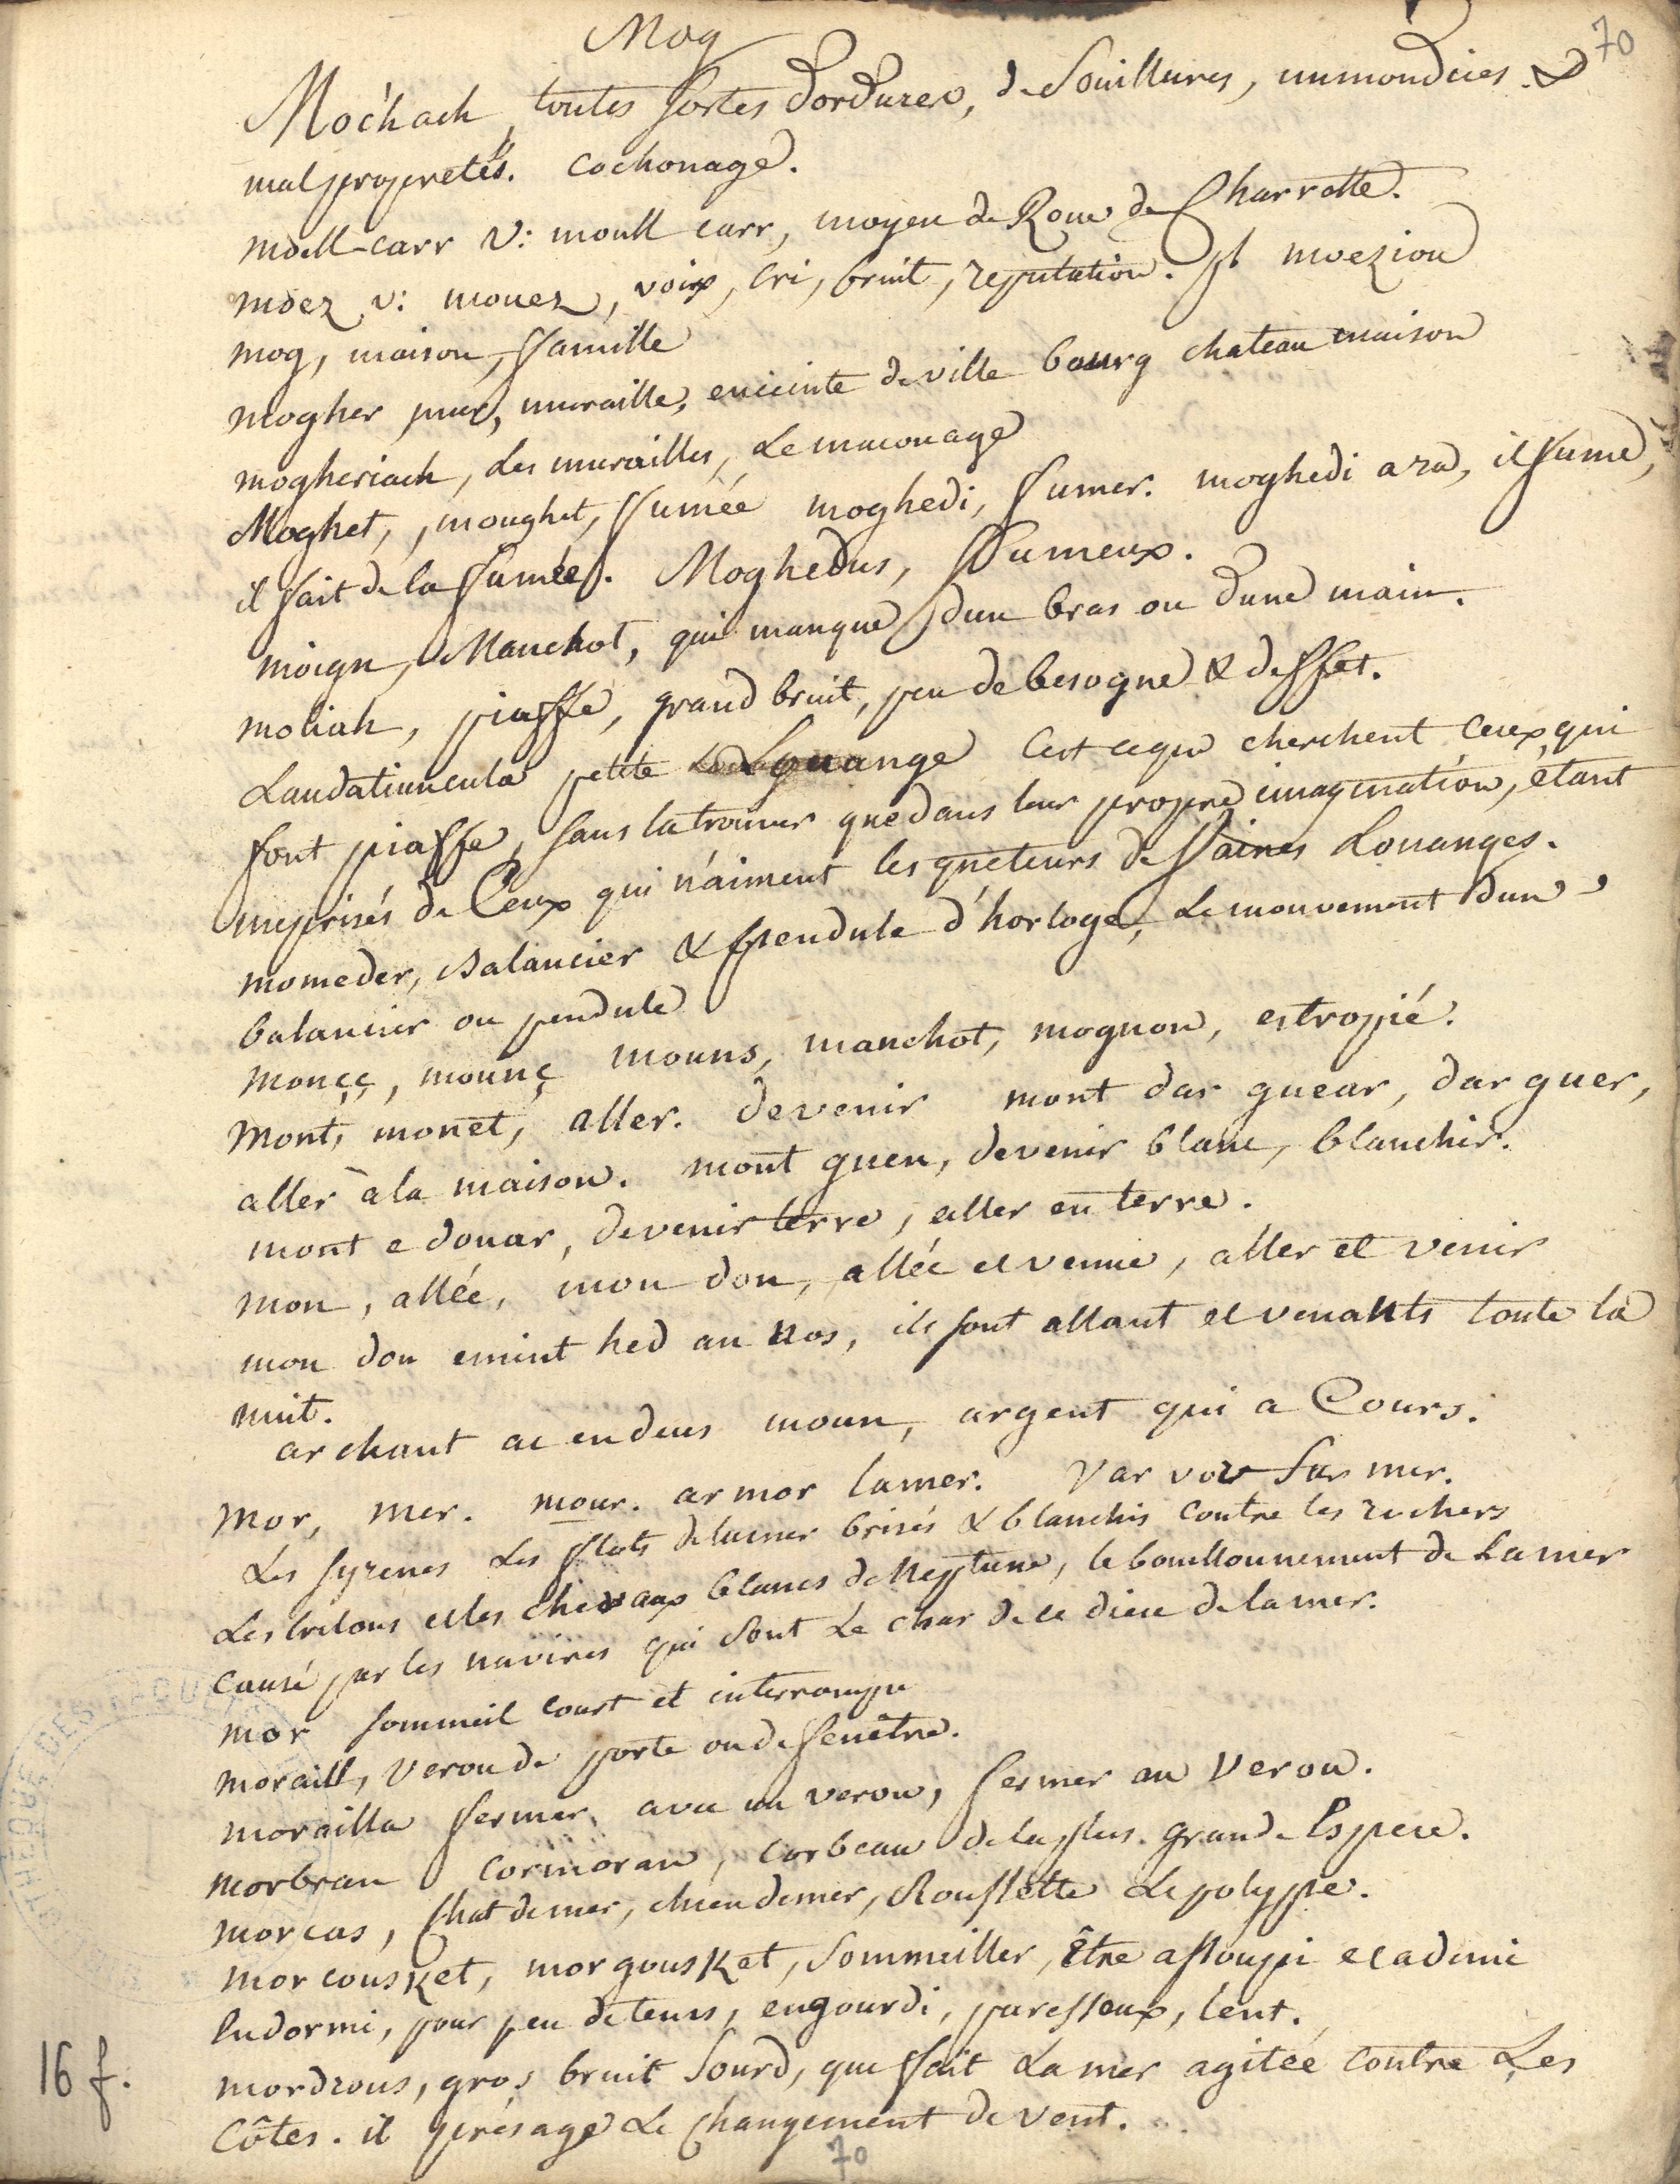 Mog
70
Moc'hach, toutes sortes dordures, de Souillures, immondicies &
malpropretés. cochonage.
moell-carr v: moull carr, moyeu de Roue de Charrette.
moez v: mouez, voix, cri, bruit, reputation. pl moeziou
mog, maison, famille
mogher mur, muraille, enceinte de ville bourg chateau maison
mogheriach, les murailles, le maconage
Moghet, moughet, fumée moghedi, fumer. moghedi a ra, il fume,
il fait de la fumée. Moghedus, fumeux.
moign, Manchot, qui manque dun bras ou dune main.
moliah, piaffe, grand bruit, peu de besogne & deffet.
Laudatiuncula petite Louange Cest ce que cherchent Ceux qui
font piaffe, sans la trouver que dans leur propre imagination, étant
meprisés de Ceux qui n'aiment les queteurs de Vaines Louanges.
momeder, Balancier & pendule d'horloge, Le mouvement dun
balancier ou pendule
moncç, mounç mouns, manchot, mognon, estropié.
Mont, monet, aller. devenir mont dar guear, dar guer,
aller à la maison. mont guen, devenir blanc, blanchir.
mont e douar, devenir terre, aller en terre.
mon, allée, mon don, allée et venue, aller et venir
mon don emint hed an nos, ils sont allant et venants toute la
nuit.
ar chant ac en deus moun, argent qui a Cours.
Mor, mer. mour. ar mor la mer. Var vor sur mer.
Les syrenes Les flots de la mer brisés & blanchis contre les rochers
Les tritons et les chevaux blancs de Neptune, le bouillonnement de La mer
causé par les navires qui Sont Le char de ce dieu de la mer.
mor sommeil court et interrompu
moraill, verou de porte ou de fenêtre.
morailla fermer avec un verou, fermer au Verou.
morbran cormoran, corbeau de la plus grande Espece.
morcas, Chat de mer, chien de mer, Roussette Le polype.
morcousket, morgousket, Sommeiller, être assoupi et a demi
Endormi, pour peu de tems, engourdi, paresseux, lent.
mordrous, gros bruit Sourd, que fait La mer agitée contre Les
Côtes. il présage Le Changement de vent.
16 f.
70